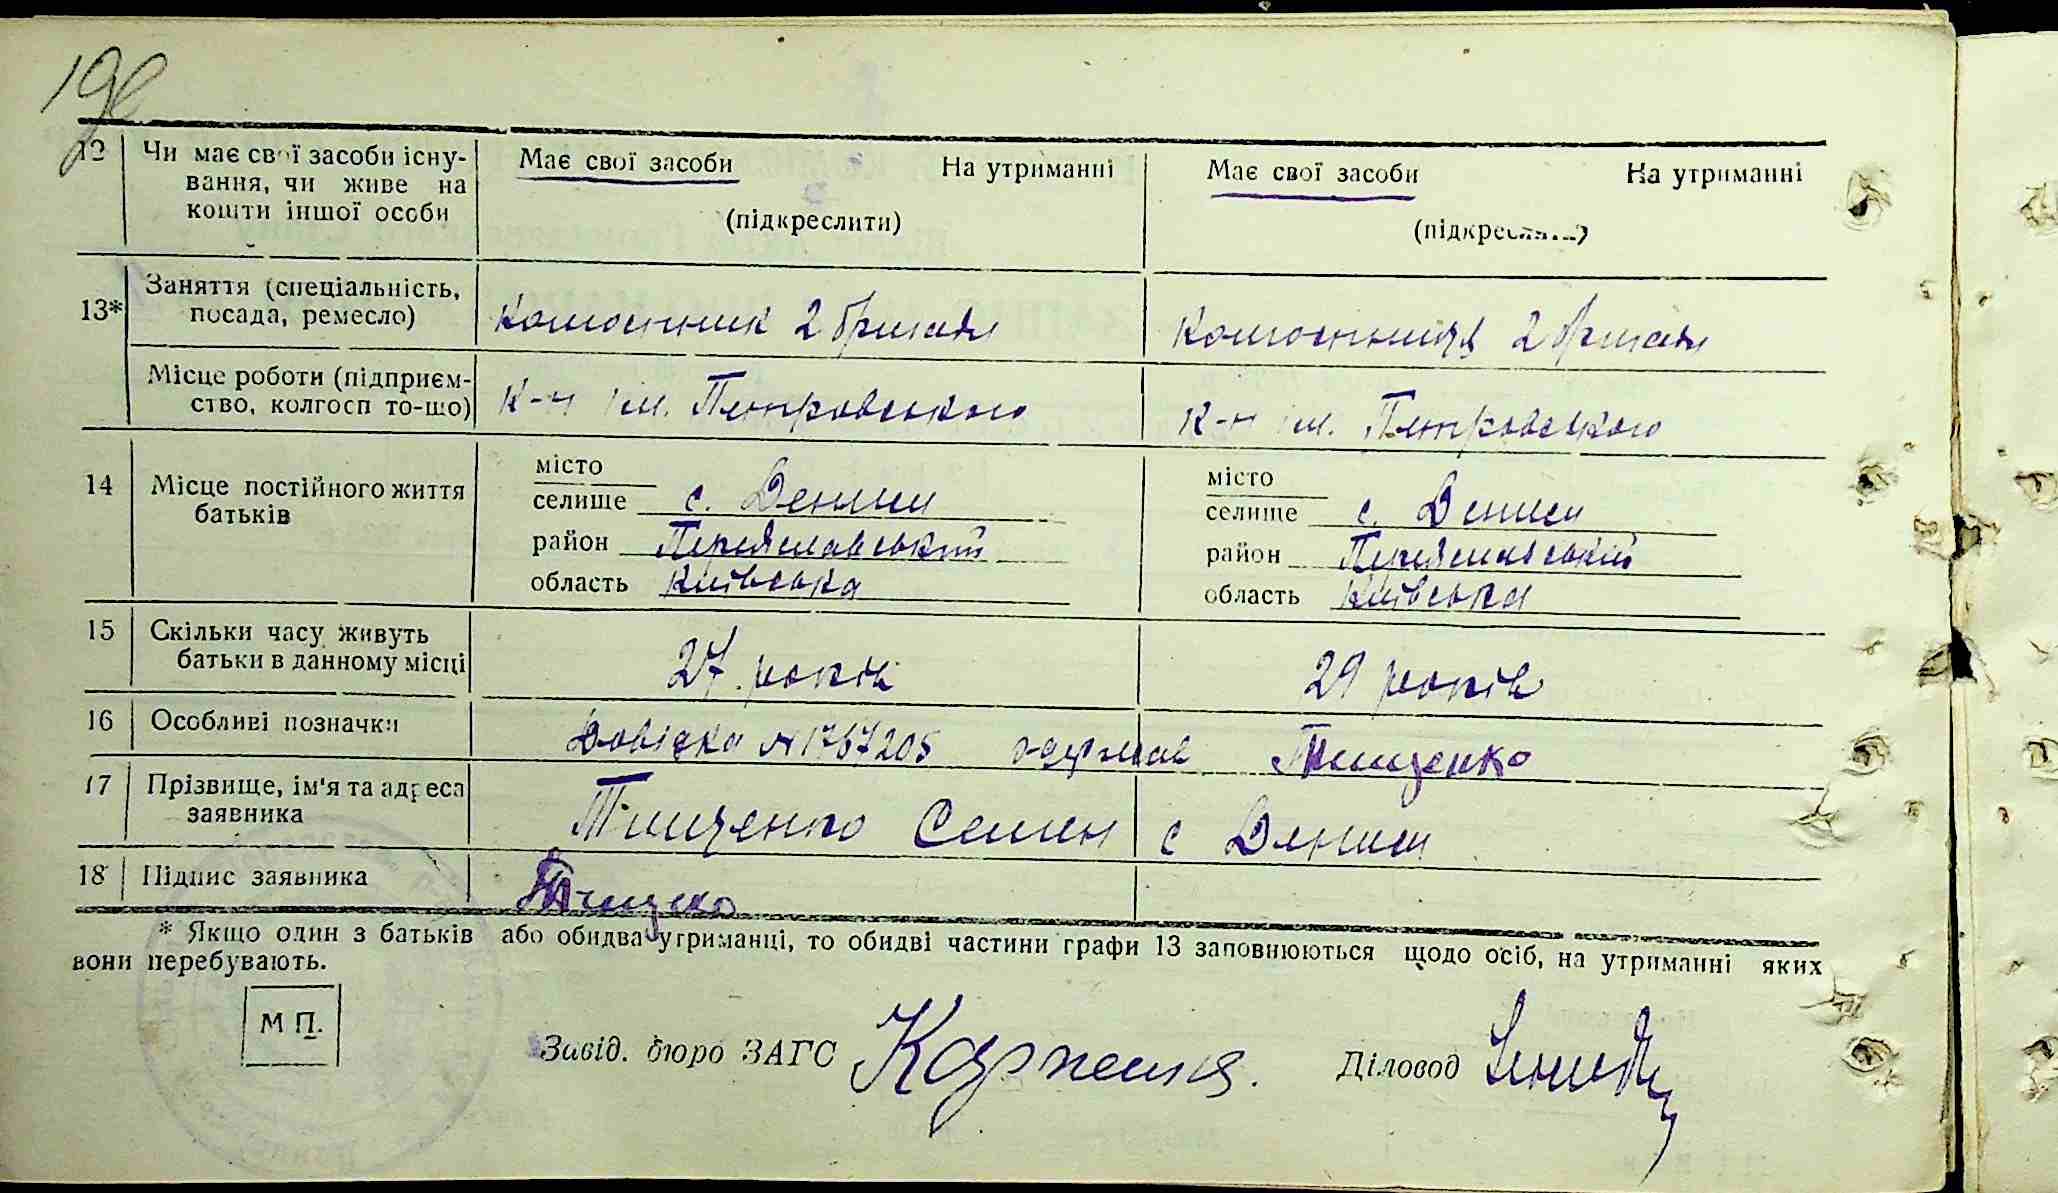 12 Чи має свої засоби існу- Має свої засоби На утриманні Має свої засоби На утриманні
вання, чи живе на
кошти іншої особи (підкреслити) (підкреслити)
13* Заняття (спеціальність,
посада, ремесло) Колгоспник 2 бригади Колгоспниця 2 бригади
Місце роботи (підприєм-
ство, колгосп то-що) К-п ім. Петровського К-п ім. Петровського
місто місто
14 Місце постійного життя селище с. Дениси селище с. Дениси
батьків район Переяславський район Переяславський
область Київська область Київська
15 Скільки часу живуть
батьки в данному місці 27 років 29 років
16 Особливі позначки Довідка № 1767205 одержав Тищенко
17 Прізвище, ім'я та адреса
заявника Тищенко Семен с Дениси
18 Підпис заявника Тищеко
* Якщо один з батьків або обидва угриманці, то обидві частини графи 13 заповнюються щодо осіб, на утриманні яких
вони перебувають.
М П.
Завід. бюро ЗАГС Діловод